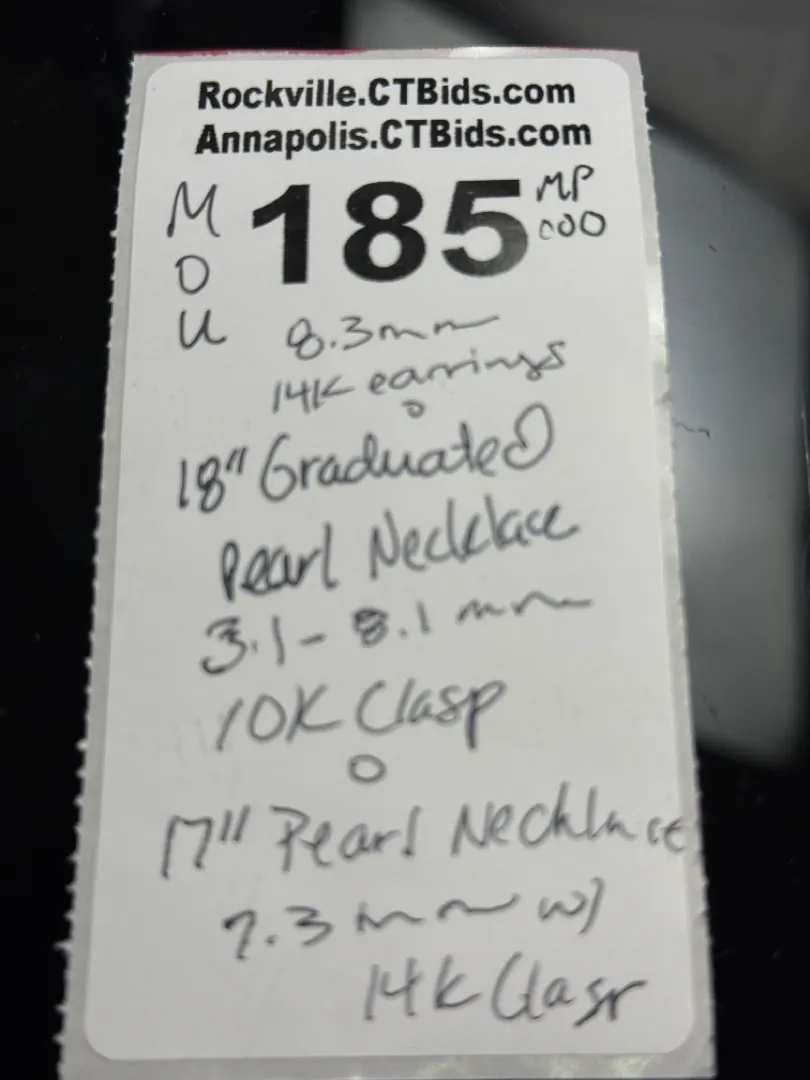 Rockville.CTBids.com
Annapolis.CTBids.com
MOU
185
MP
000
8.3mm
14K earrings
18" Graduated
Pearl Necklace
3.1 - 8.1 mm
10K Clasp
17" Pearl Necklace
7.3 mm w/
14k Clasp